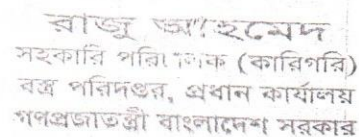 রাজু আহমেদ
সহকারি পরিচালক (কারিগরি)
বস্ত্র পরিদপ্তর, প্রধান কার্যালয়
গণপ্রজাতন্ত্রী বাংলাদেশ সরকার